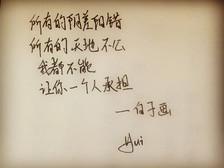 所有的阴差阳错
所有的天地不仁
我都不能
让你一个人承担
—白子画